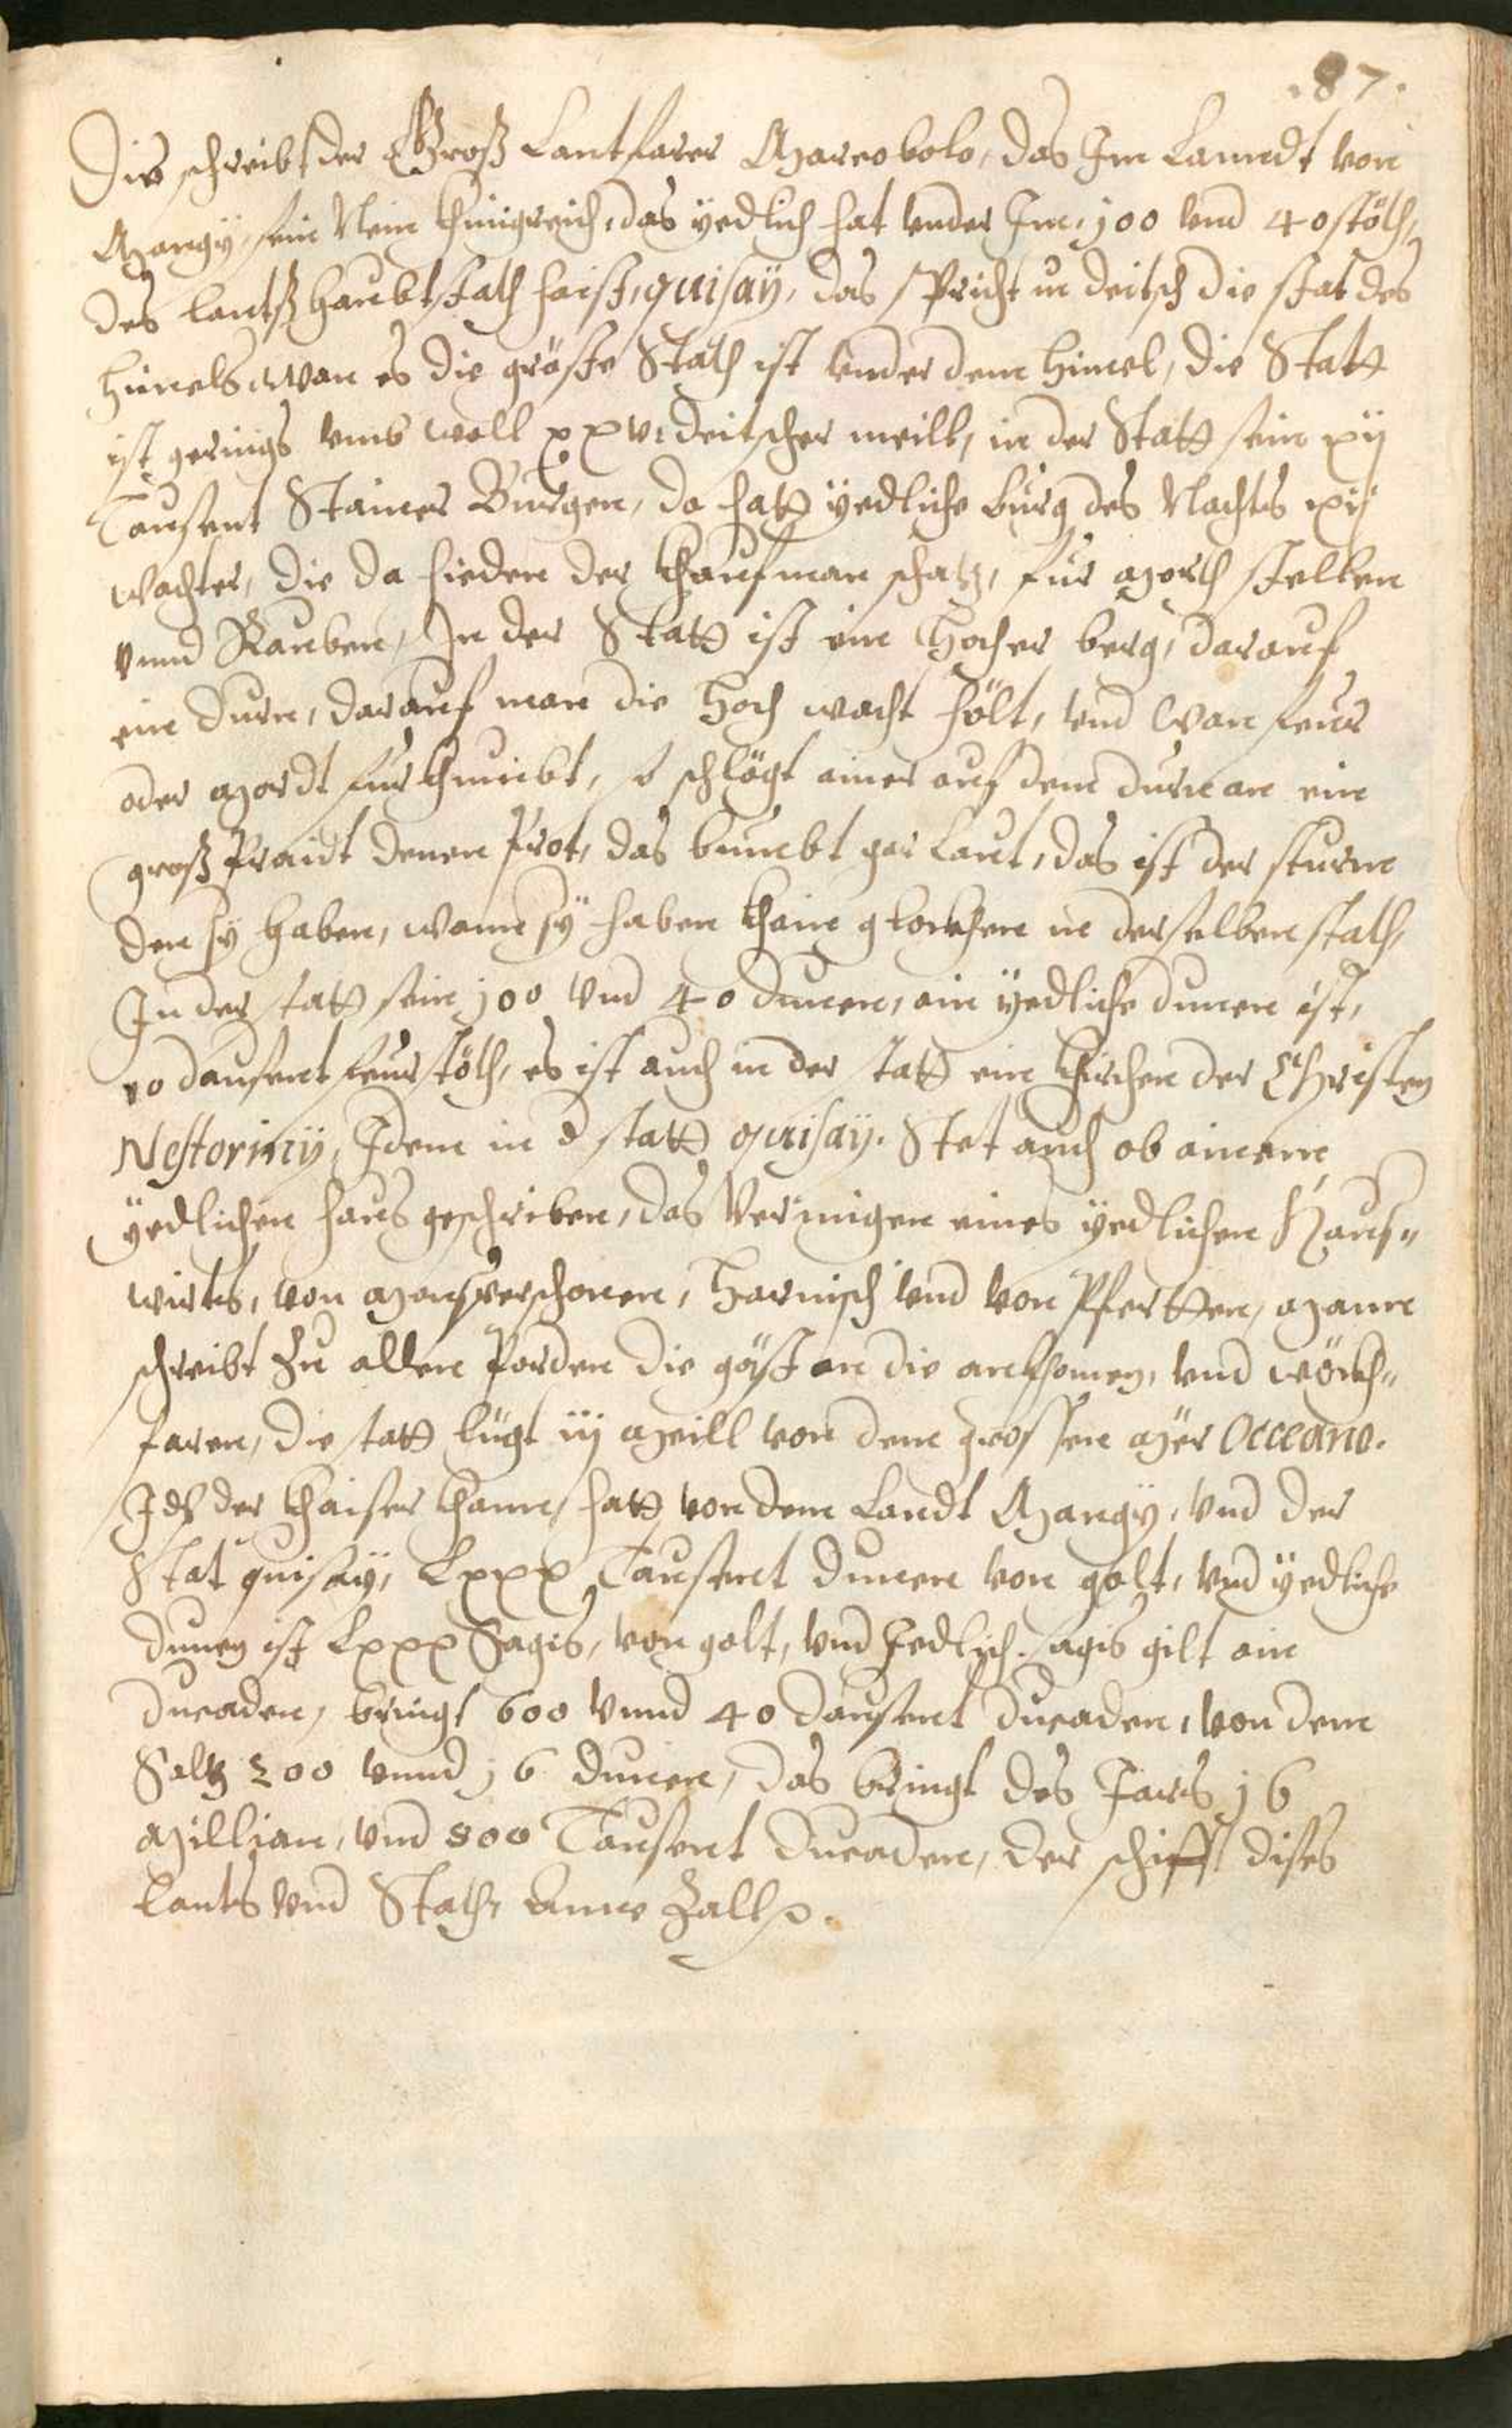 .87.
Die schreibt der Groß Lantfarer Marcobolo, das Im Lanndt von
Mangy, sein Nein khinigreich, das yedlich hat vnder Im, 100 vnd 40 stöth,
des lantß haubtstath haist, quisaÿ, das spricht in deitsch die stat des
himels, wan es die gröste Stath ist vnder dem himel, die Statt
ist gerings vmb woll xxv: deitscher meill, in der Statt sein xij
Tausent Stainer Burgen, da hatt yedliche burg des Nachts xij
wachter, die da hieden der khaufman schatz, fur morth stellen
vnnd Rauben, In der Statt ist ein Hocher berg, darauf
ein durn, darauf man die hoch wacht hölt, vnd wan feur
oder mordt fur khumbt, so schlögt ainer auf dem durn an ein
groß Praidt denen Prot, das bumbt gar laut, das ist der sturm
den sÿ haben, wann sÿ haben khain glockhen in derselben stath,
In der statt sein 100 vnd 40 dumen, ain yedliche dumen ist,
10 dausent feurstöth, es ist auch in der statt ein khirchen der Christen
Nestoriny, Idem in d statt quisaÿ. Stet auch ob ainem
yedlichen haus geschriben, das Vermigen eines yedlichen Haus"
wirts, von harnisch vnd von Pfertten, mann
schreibt zu allen Porden die göst an die ankhomen, vnd wöckh"
faren, die statt ligt iij meill von dem grossen mör Occeano.
der khaiser khann, hatt von dem Landt Mangy, vnd der
Stat quisaÿ, Lxxx Tausent dumen von golt, vnd yedliche
dumen ist Lxxx Sagis, von golt, vnd Jedlich sagis gilt ain
ducaden, bringt 600 vnnd 40 dausent ducaden, von dem
Saltz 200 vnnd 16 dumen, das bringt des Jars 16
Millian, vnd 800 Tausent ducaden, der schifft dises
Lants vnd Stath, Zall